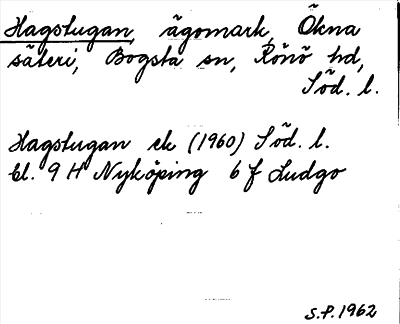 Hagstugan, ägomark, Ökna
säteri, Bogsta sn, Rönö hd,
Söd. l.
Hagstugan ek (1960) Söd. l.
bl. 9 H Nyköping 6 f Ludgo
S.P. 1962